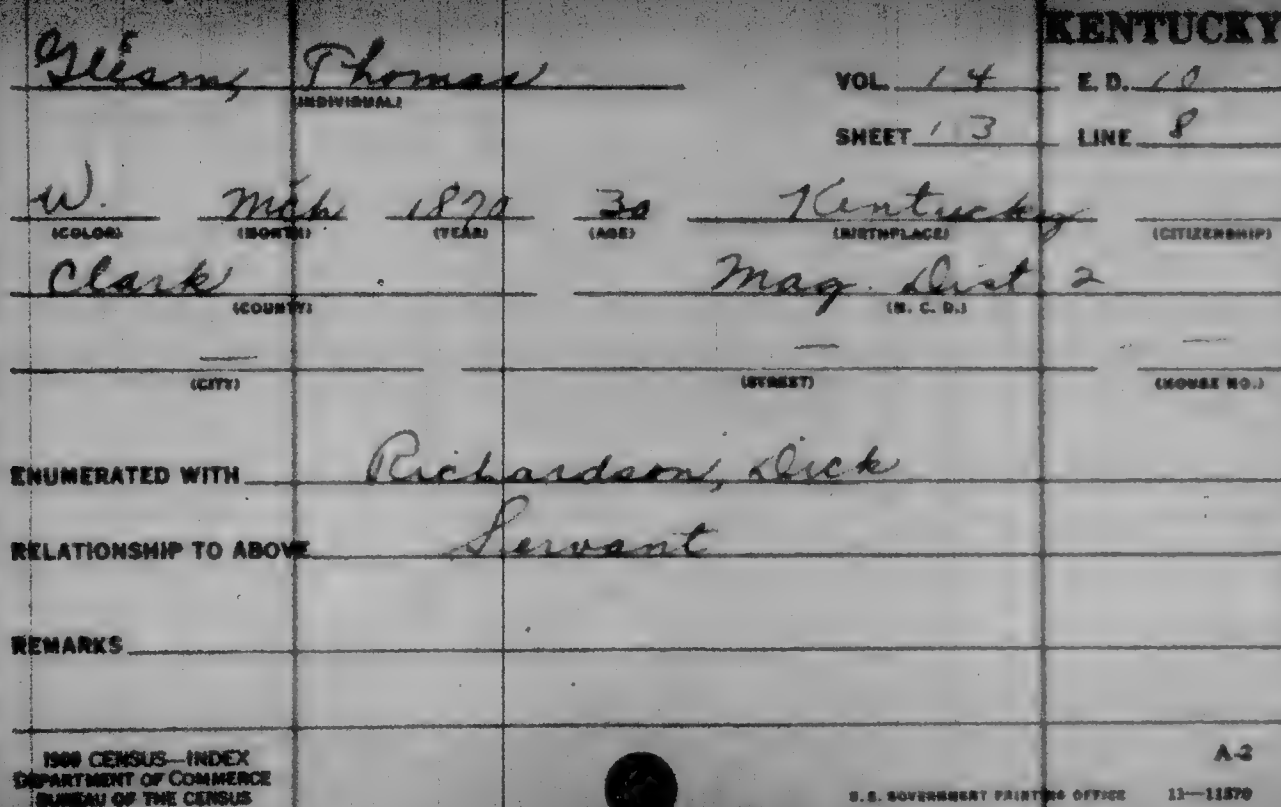 KENTUCKY
Gleam, Thomas
(INDIVIDUAL)
VOL. 14 E. D. 10
SHEET 13 LINE 8
W. Mch 1870 30 Kentucky
(COLOR) (MONTH) (YEAR) (AGE) (BIRTHPLACE) (CITIZENSHIP)
Clark Mag. Dist 2
(COUNTY) (M. C. D.)
— — —
(CITY) (STREET) (HOUSE NO.)
ENUMERATED WITH Richardson, Dick
RELATIONSHIP TO ABOVE Servant
REMARKS
1900 CENSUS—INDEX
DEPARTMENT OF COMMERCE
BUREAU OF THE CENSUS
A-2
U.S. GOVERNMENT PRINTING OFFICE 11—11570